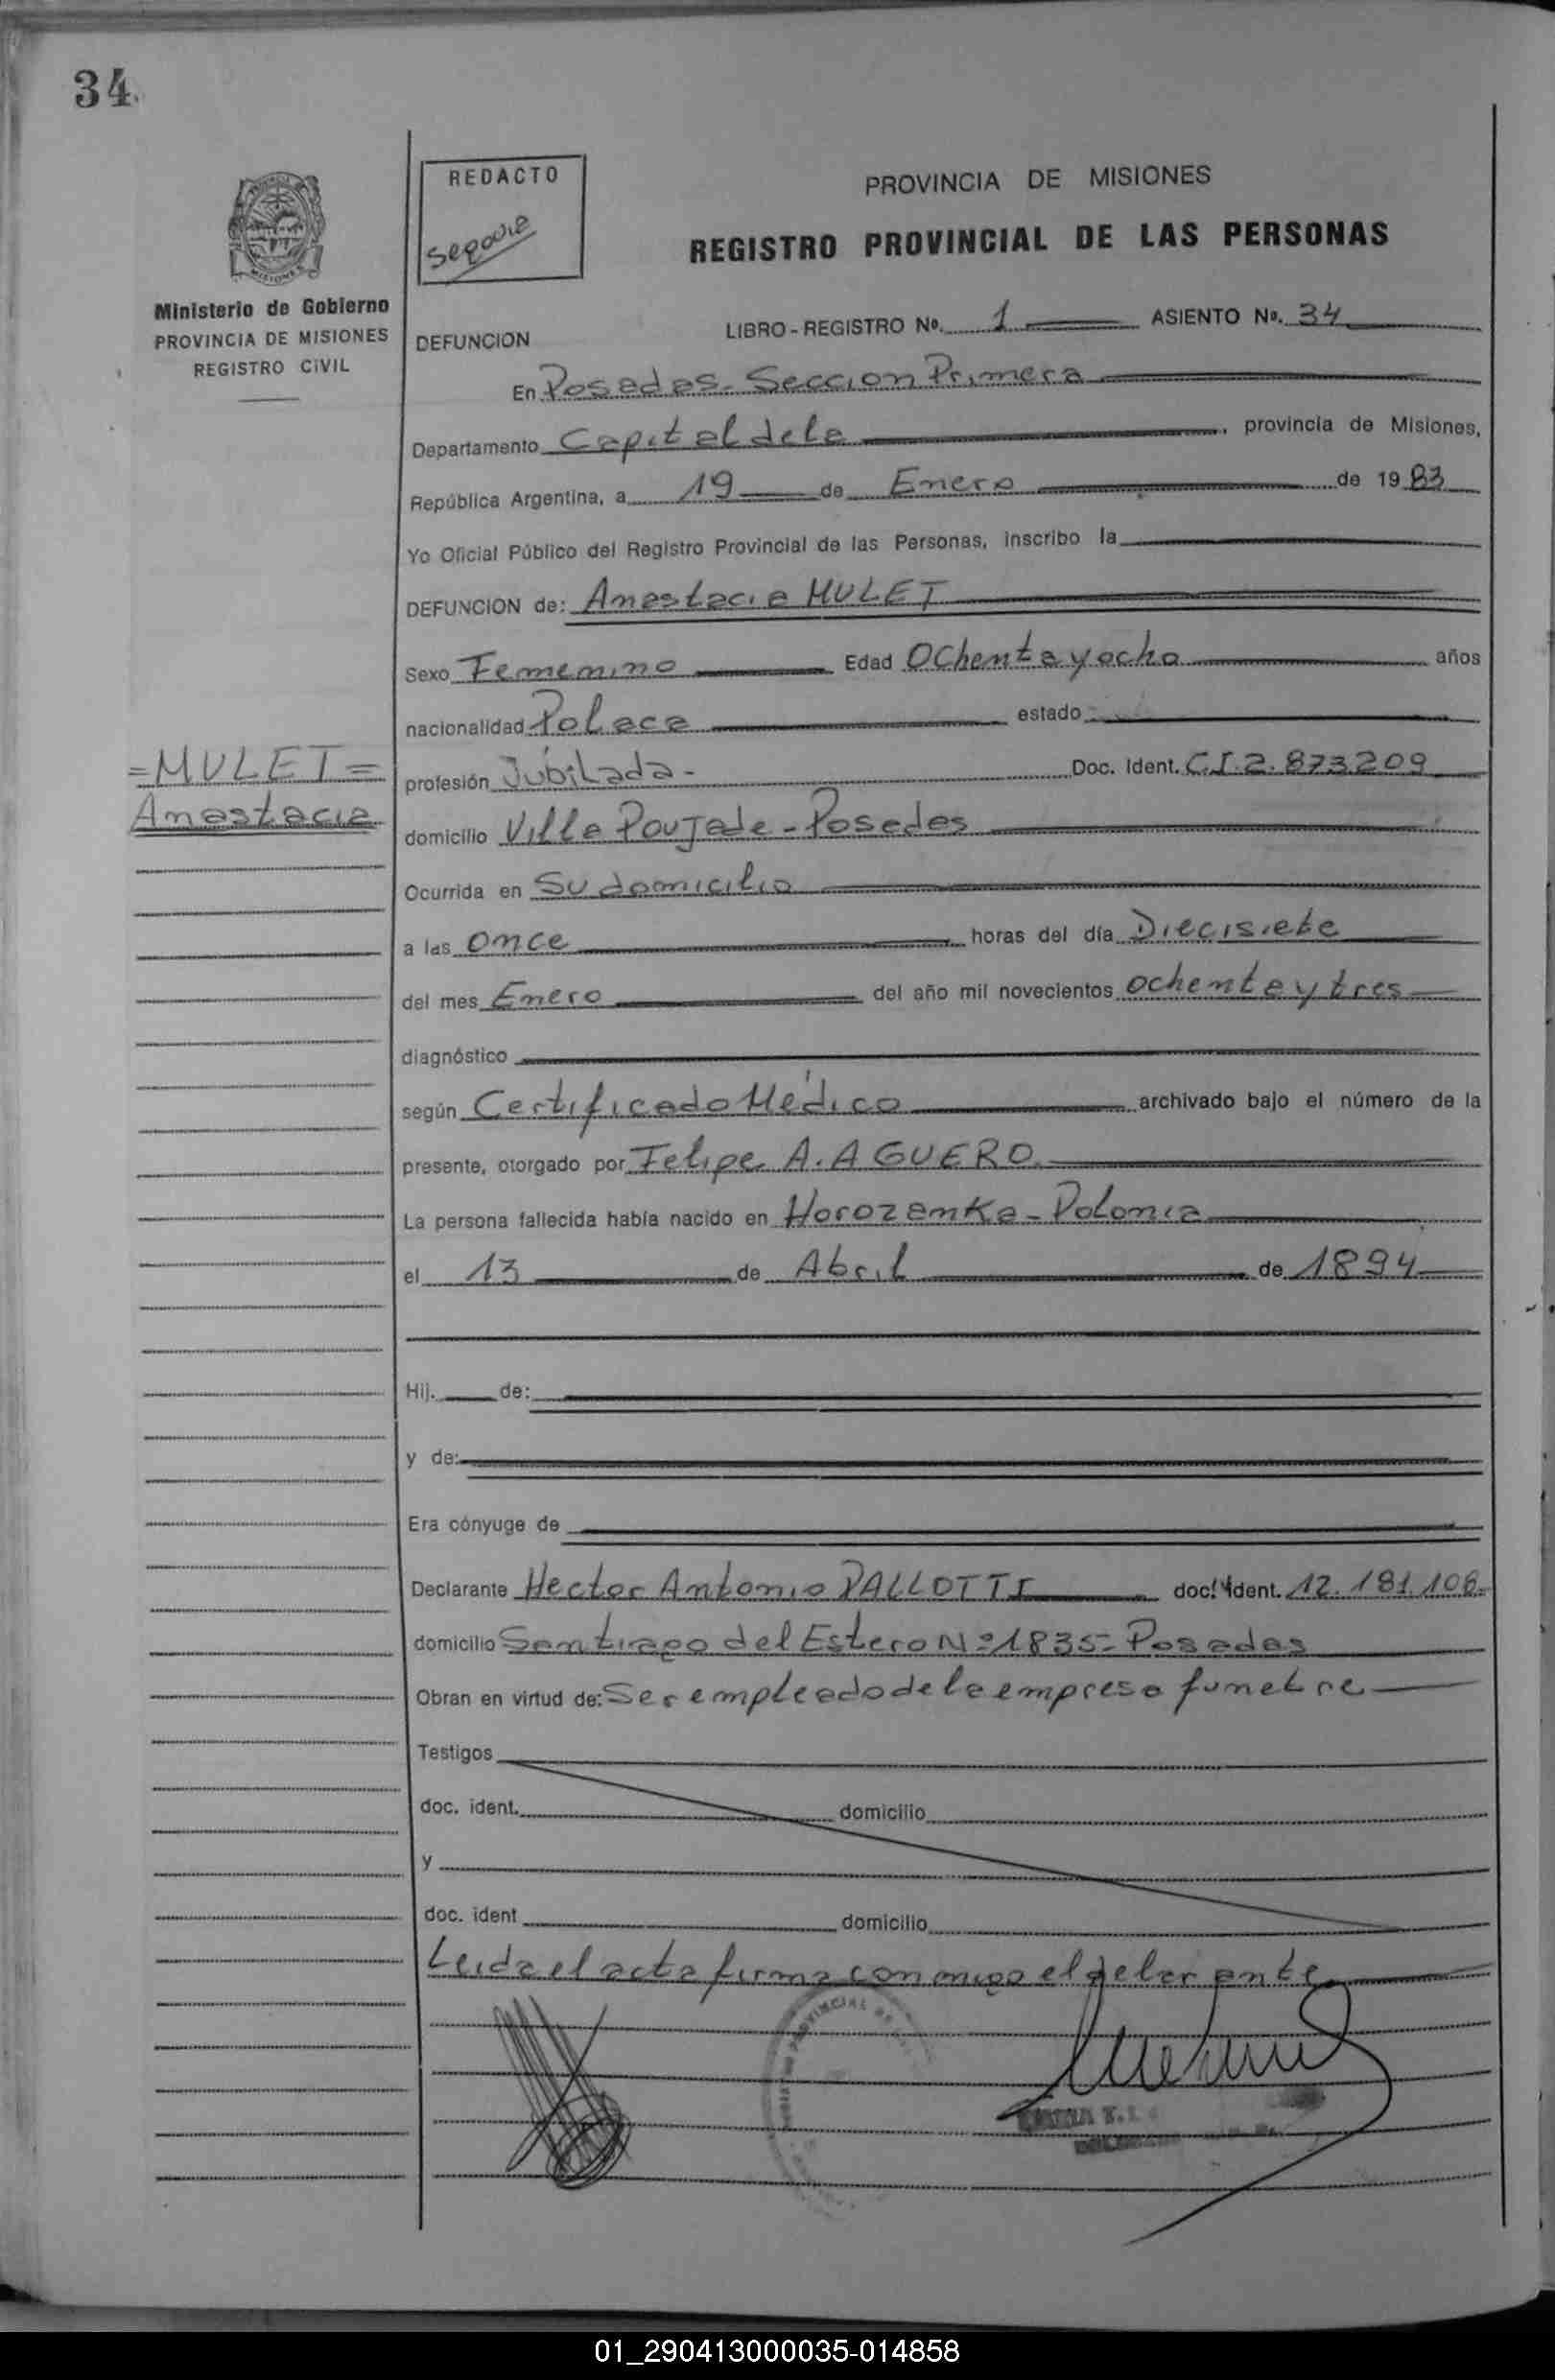 34
REDACTO
Segovia
Ministerio de Gobierno
PROVINCIA DE MISIONES
REGISTRO CIVIL
PROVINCIA DE MISIONES
REGISTRO PROVINCIAL DE LAS PERSONAS
DEFUNCION LIBRO-REGISTRO No. 1 ASIENTO No. 34
En Posadas - Seccion Primera
Departamento Capital de la, provincia de Misiones,
República Argentina, a 19 de Enero de 1983
Yo Oficial Público del Registro Provincial de las Personas, inscribo la
DEFUNCION de: Anastacia MULET
Sexo Femenino Edad Ochenta y ocho años
nacionalidad Polaca estado
=MULET=
Anastacia
profesión Jubilada- Doc. Ident. C.I. 2.873209
domicilio Villa Poujade - Posadas
Ocurrida en Su domicilio
a las once horas del día Diecisiete
del mes Enero del año mil novecientos ochenta y tres
diagnóstico
según Certificado Médico archivado bajo el número de la
presente, otorgado por Felipe A. AGUERO
La persona fallecida había nacido en Horozamka - Polonia
el 13 de Abril de 1894
Hij. de:
y de:
Era cónyuge de
Declarante Hector Antonio PALLOTTI doc. ident. 12.181.106.
domicilio Santiago del Estero Nº 1835- Posadas
Obran en virtud de: Ser empleado de la empresa funebre
Testigos
doc. ident. domicilio
y
doc. ident domicilio
Leida el acta firma conmigo el delarante
01_290413000035-014858